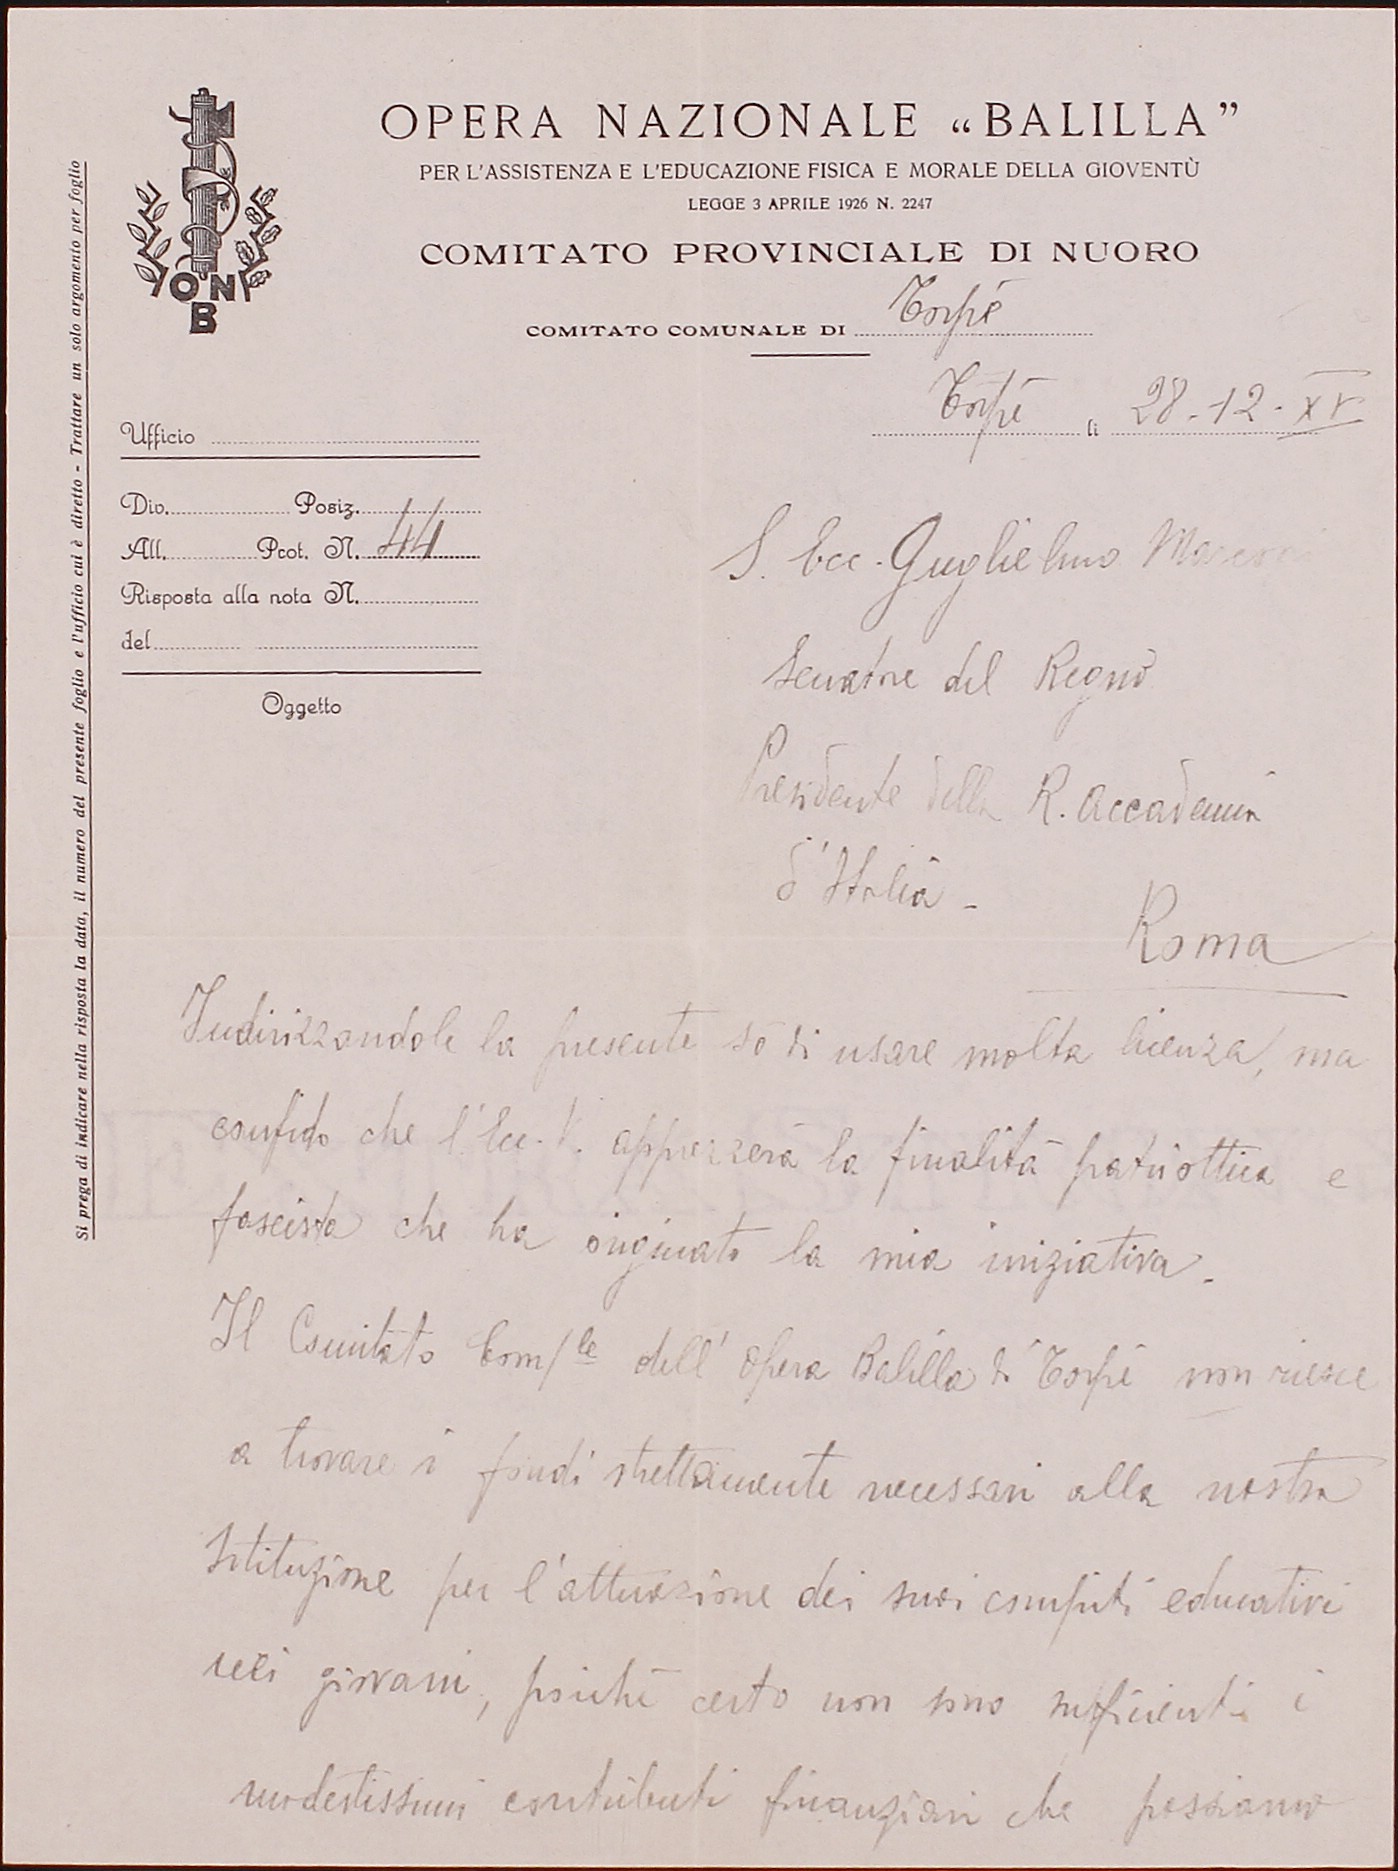 OPERA NAZIONALE „BALILLA”
PER L'ASSISTENZA E L'EDUCAZIONE FISICA E MORALE DELLA GIOVENTÙ
LEGGE 3 APRILE 1926 N. 2247
COMITATO PROVINCIALE DI NUORO
COMITATO COMUNALE DI Torpè
ONB
Torpè li 28-12-XV
Ufficio
Div. Posiz.
All. Prot. N. 44
Risposta alla nota N.
del
Oggetto
Si prega di indicare nella risposta la data, il numero del presente foglio e l'ufficio cui è diretto - Trattare un solo argomento per foglio
S. Ecc. Guglielmo Marconi
Senatore del Regno
Presidente della R. Accademia
d'Italia -
Roma
Indirizzandole la presente so di usare molta licenza, ma
confido che l'Ecc. V. apprezzerà la finalità patriottica e
fascista che ha originato la mia iniziativa.
Il Comitato Com/le dell'Opera Balilla di Torpè non riesce
a trovare i fondi strettamente necessari alla nostra
Istituzione per l'attuazione dei suoi compiti educativi
giovani, poiché certo non sono sufficienti i
modestissimi contributi finanziari che possiamo